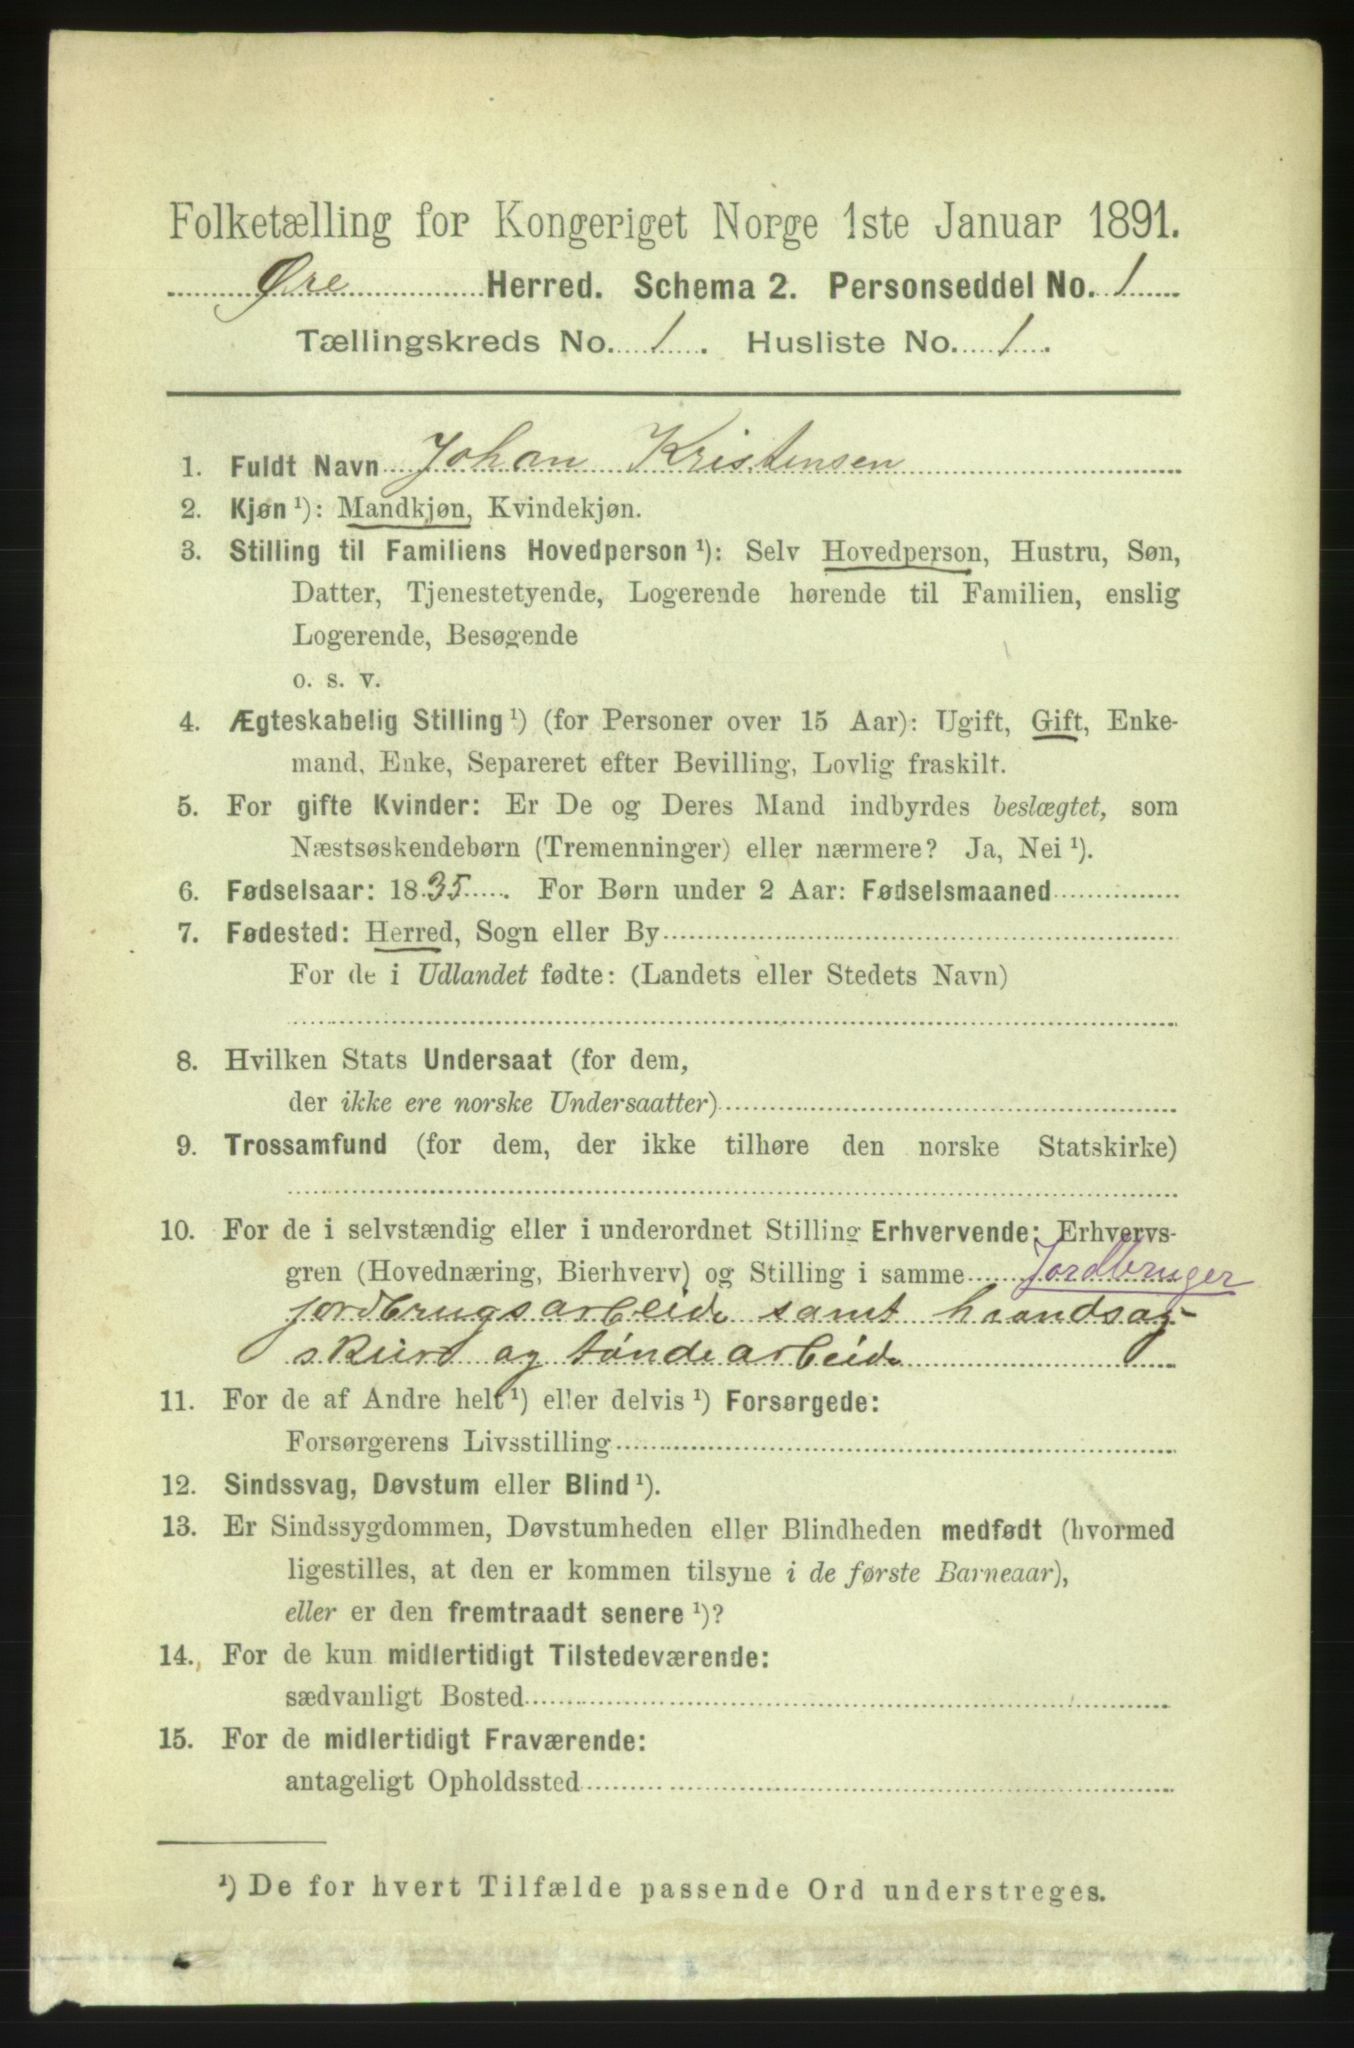 Folketælling for Kongeriget Norge 1ste Januar 1891.
Øre Herred. Schema 2. Personseddel No. 1
Tællingskreds No. 1. Husliste No. 1.
1. Fuldt Navn Johan Kristensen
2. Kjøn ¹): Mandkjøn, Kvindekjøn.
3. Stilling til Familiens Hovedperson ¹): Selv Hovedperson, Hustru, Søn,
Datter, Tjenestetyende, Logerende hørende til Familien, enslig
Logerende, Besøgende
o. s. v.
4. Ægteskabelig Stilling ¹) (for Personer over 15 Aar): Ugift, Gift, Enke-
mand, Enke, Separeret efter Bevilling, Lovlig fraskilt.
5. For gifte Kvinder: Er De og Deres Mand indbyrdes beslægtet, som
Næstsøskendebørn (Tremenninger) eller nærmere? Ja, Nei ¹).
6. Fødselsaar: 1835. For Børn under 2 Aar: Fødselsmaaned
7. Fødested: Herred, Sogn eller By
For de i Udlandet fødte: (Landets eller Stedets Navn)
8. Hvilken Stats Undersaat (for dem,
der ikke ere norske Undersaatter)
9. Trossamfund (for dem, der ikke tilhøre den norske Statskirke)
10. For de i selvstændig eller i underordnet Stilling Erhvervende: Erhvervs-
gren (Hovednæring, Bierhverv) og Stilling i samme Jordbruger
jordbrugsarbeide samt haandsag-
skur og tøndearbeide
11. For de af Andre helt ¹) eller delvis ¹) Forsørgede:
Forsørgerens Livsstilling
12. Sindssvag, Døvstum eller Blind ¹).
13. Er Sindssygdommen, Døvstumheden eller Blindheden medfødt (hvormed
ligestilles, at den er kommen tilsyne i de første Barneaar),
eller er den fremtraadt senere ¹)?
14. For de kun midlertidigt Tilstedeværende:
sædvanligt Bosted
15. For de midlertidigt Fraværende:
antageligt Opholdssted
¹) De for hvert Tilfælde passende Ord understreges.